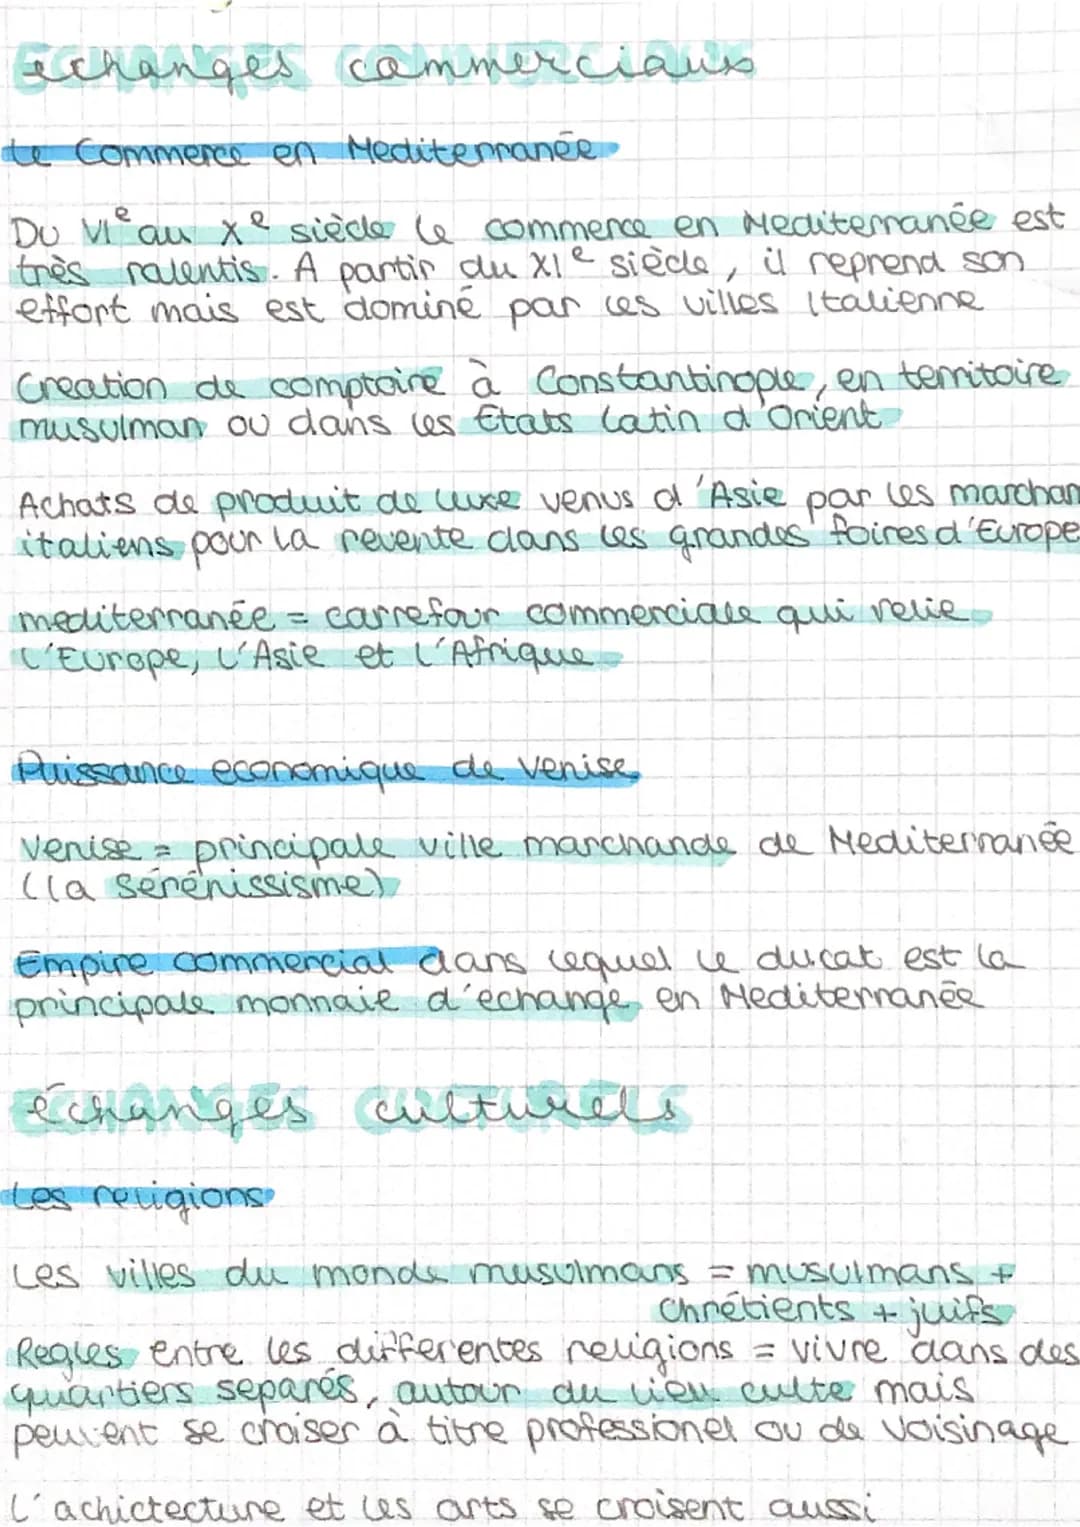 échanges commerciaux
Le Commerce en Mediterranée
Du VIe au Xe siècle le commerce en Mediterranée est
très ralentis. A partir du XIe siècle, il reprend son
effort mais est dominé par les villes Italienne
Creation de comptoire à Constantinople, en territoire
musulman ou dans les États latin d'Orient
Achats de produit de luxe venus d'Asie par les marchan
italiens pour la revente dans les grandes foires d'Europe
mediterranée = carrefour commerciale qui relie
l'Europe, l'Asie et l'Afrique
Puissance economique de Venise
Venise = principale ville marchande de Mediterranée
(la sérénissisme)
Empire commercial dans lequel le ducat est la
principale monnaie d'échange en Mediterranée
échanges culturels
Les religions
Les villes du monde musulmans = musulmans +
Chrétients + juifs
Regles entre les differentes religions = vivre dans des
quartiers separés, autour du lieu culte mais
peuvent se croiser à titre professionel ou de voisinage
L'achictecture et les arts se croisent aussi